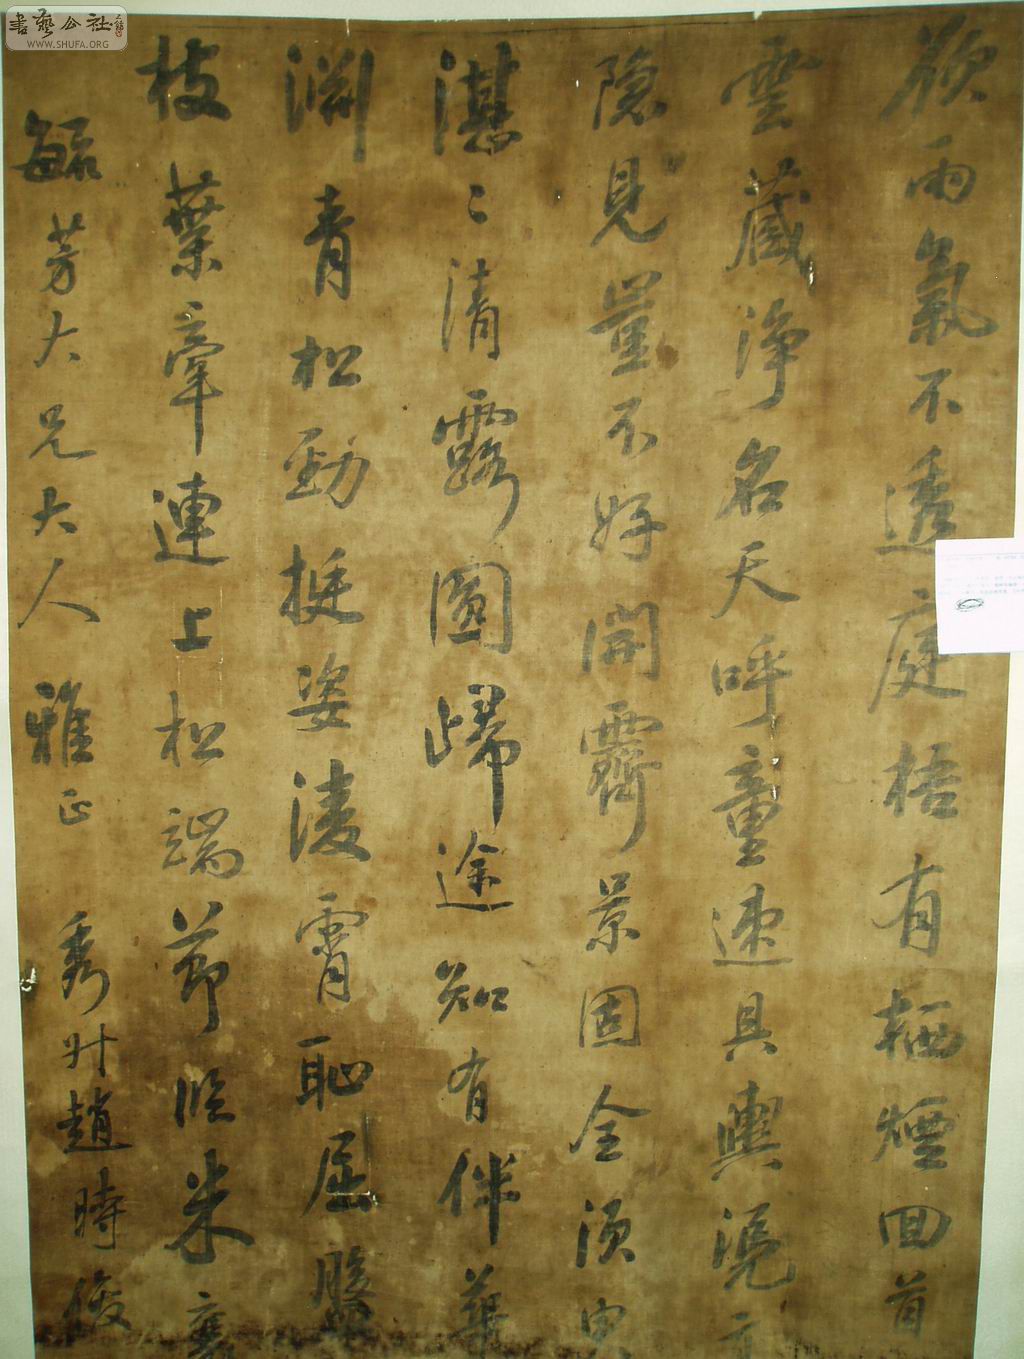 欲雨氣不透庭梧有栖煙回首
雲藏淨名天呼童速具輿
隐見岩不好開霽景固全須
湛〻清露圓歸途知有伴華
淵青松勁挺姿凌霄恥屈盤
枝葉牽連上松端節臨米
毓芳大兄大人雅正 秀州趙時俊
書藝公社
WWW.SHUFA.ORG